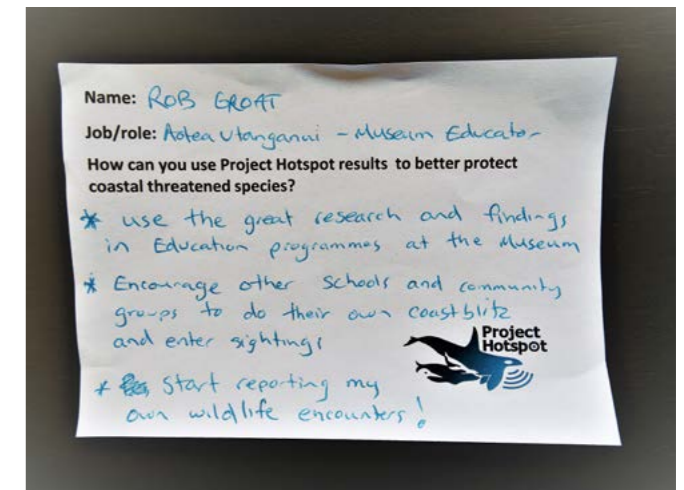 Name: ROB GROAT
Job/role: Aotea Utanganui - Museum Educator
How can you use Project Hotspot results to better protect
coastal threatened species?
* use the great research and findings
in Education programmes at the Museum
* Encourage other schools and community
groups to do their own coastblitz
and enter sightings
Project
Hotspot
* Start reporting my
own wildlife encounters!